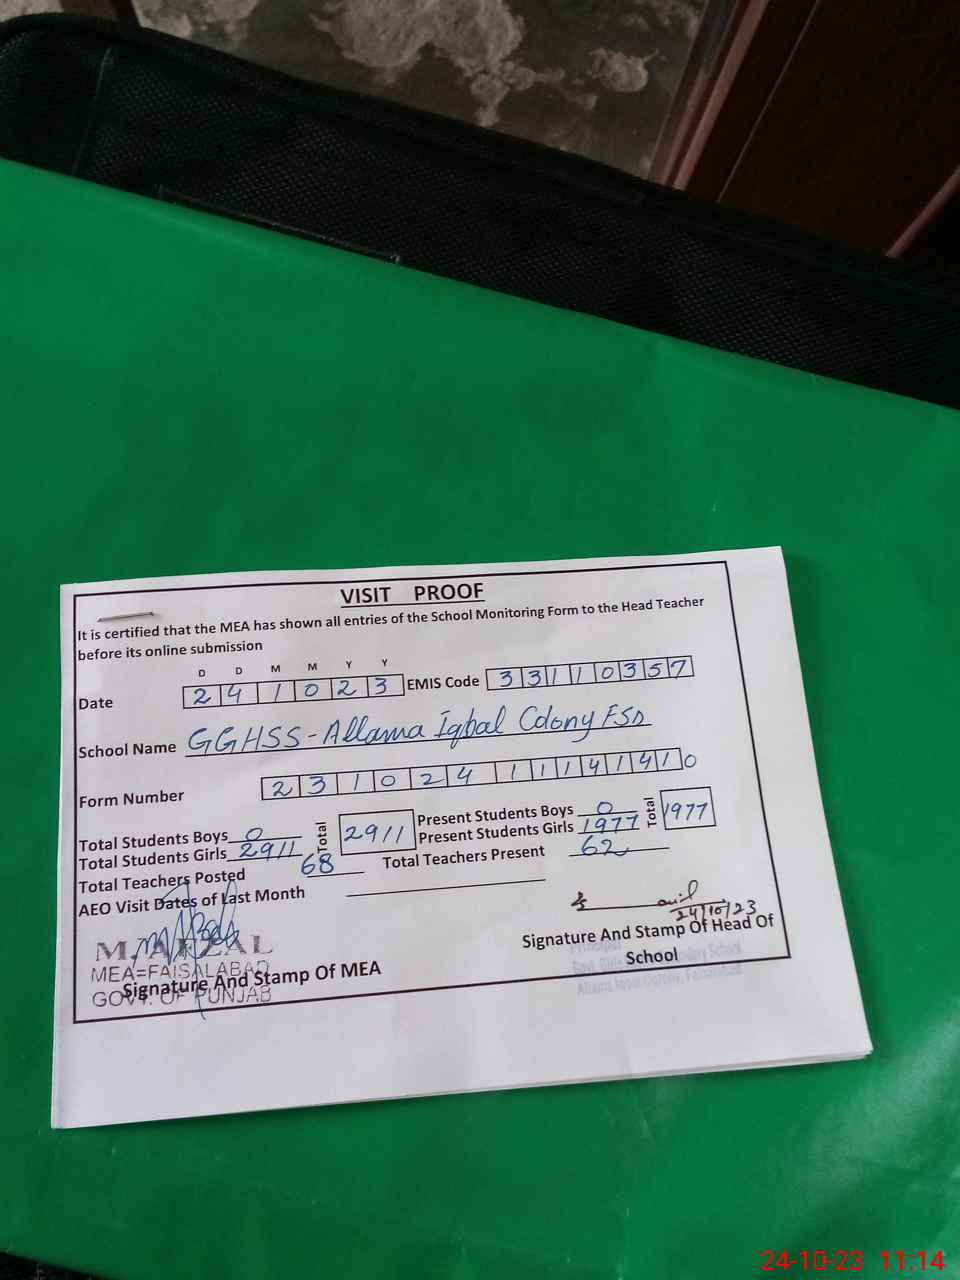 VISIT PROOF
It is certified that the MEA has shown all entries of the School Monitoring Form to the Head Teacher
before its online submission
D D M M Y Y
Date 2 4 1 0 2 3 EMIS Code 3 3 1 1 0 3 5 7
School Name GGHSS-Allama Iqbal Colony FSD
Form Number 2 3 1 0 2 4 1 1 1 4 1 4 1 0
Total Students Boys 0 Total 2911 Present Students Boys 0 Total 1977
Total Students Girls 2911 Present Students Girls 1977
Total Teachers Posted 68 Total Teachers Present 62
AEO Visit Dates of Last Month
24/10/23
M. AFZAL
MEA=FAISALABAD
GOVT. OF PUNJAB
Signature And Stamp Of MEA
Signature And Stamp Of Head Of
School
Principal
Govt. Girls Secondary School
Allama Iqbal Colony, Faisalabad
24-10-23 11:14